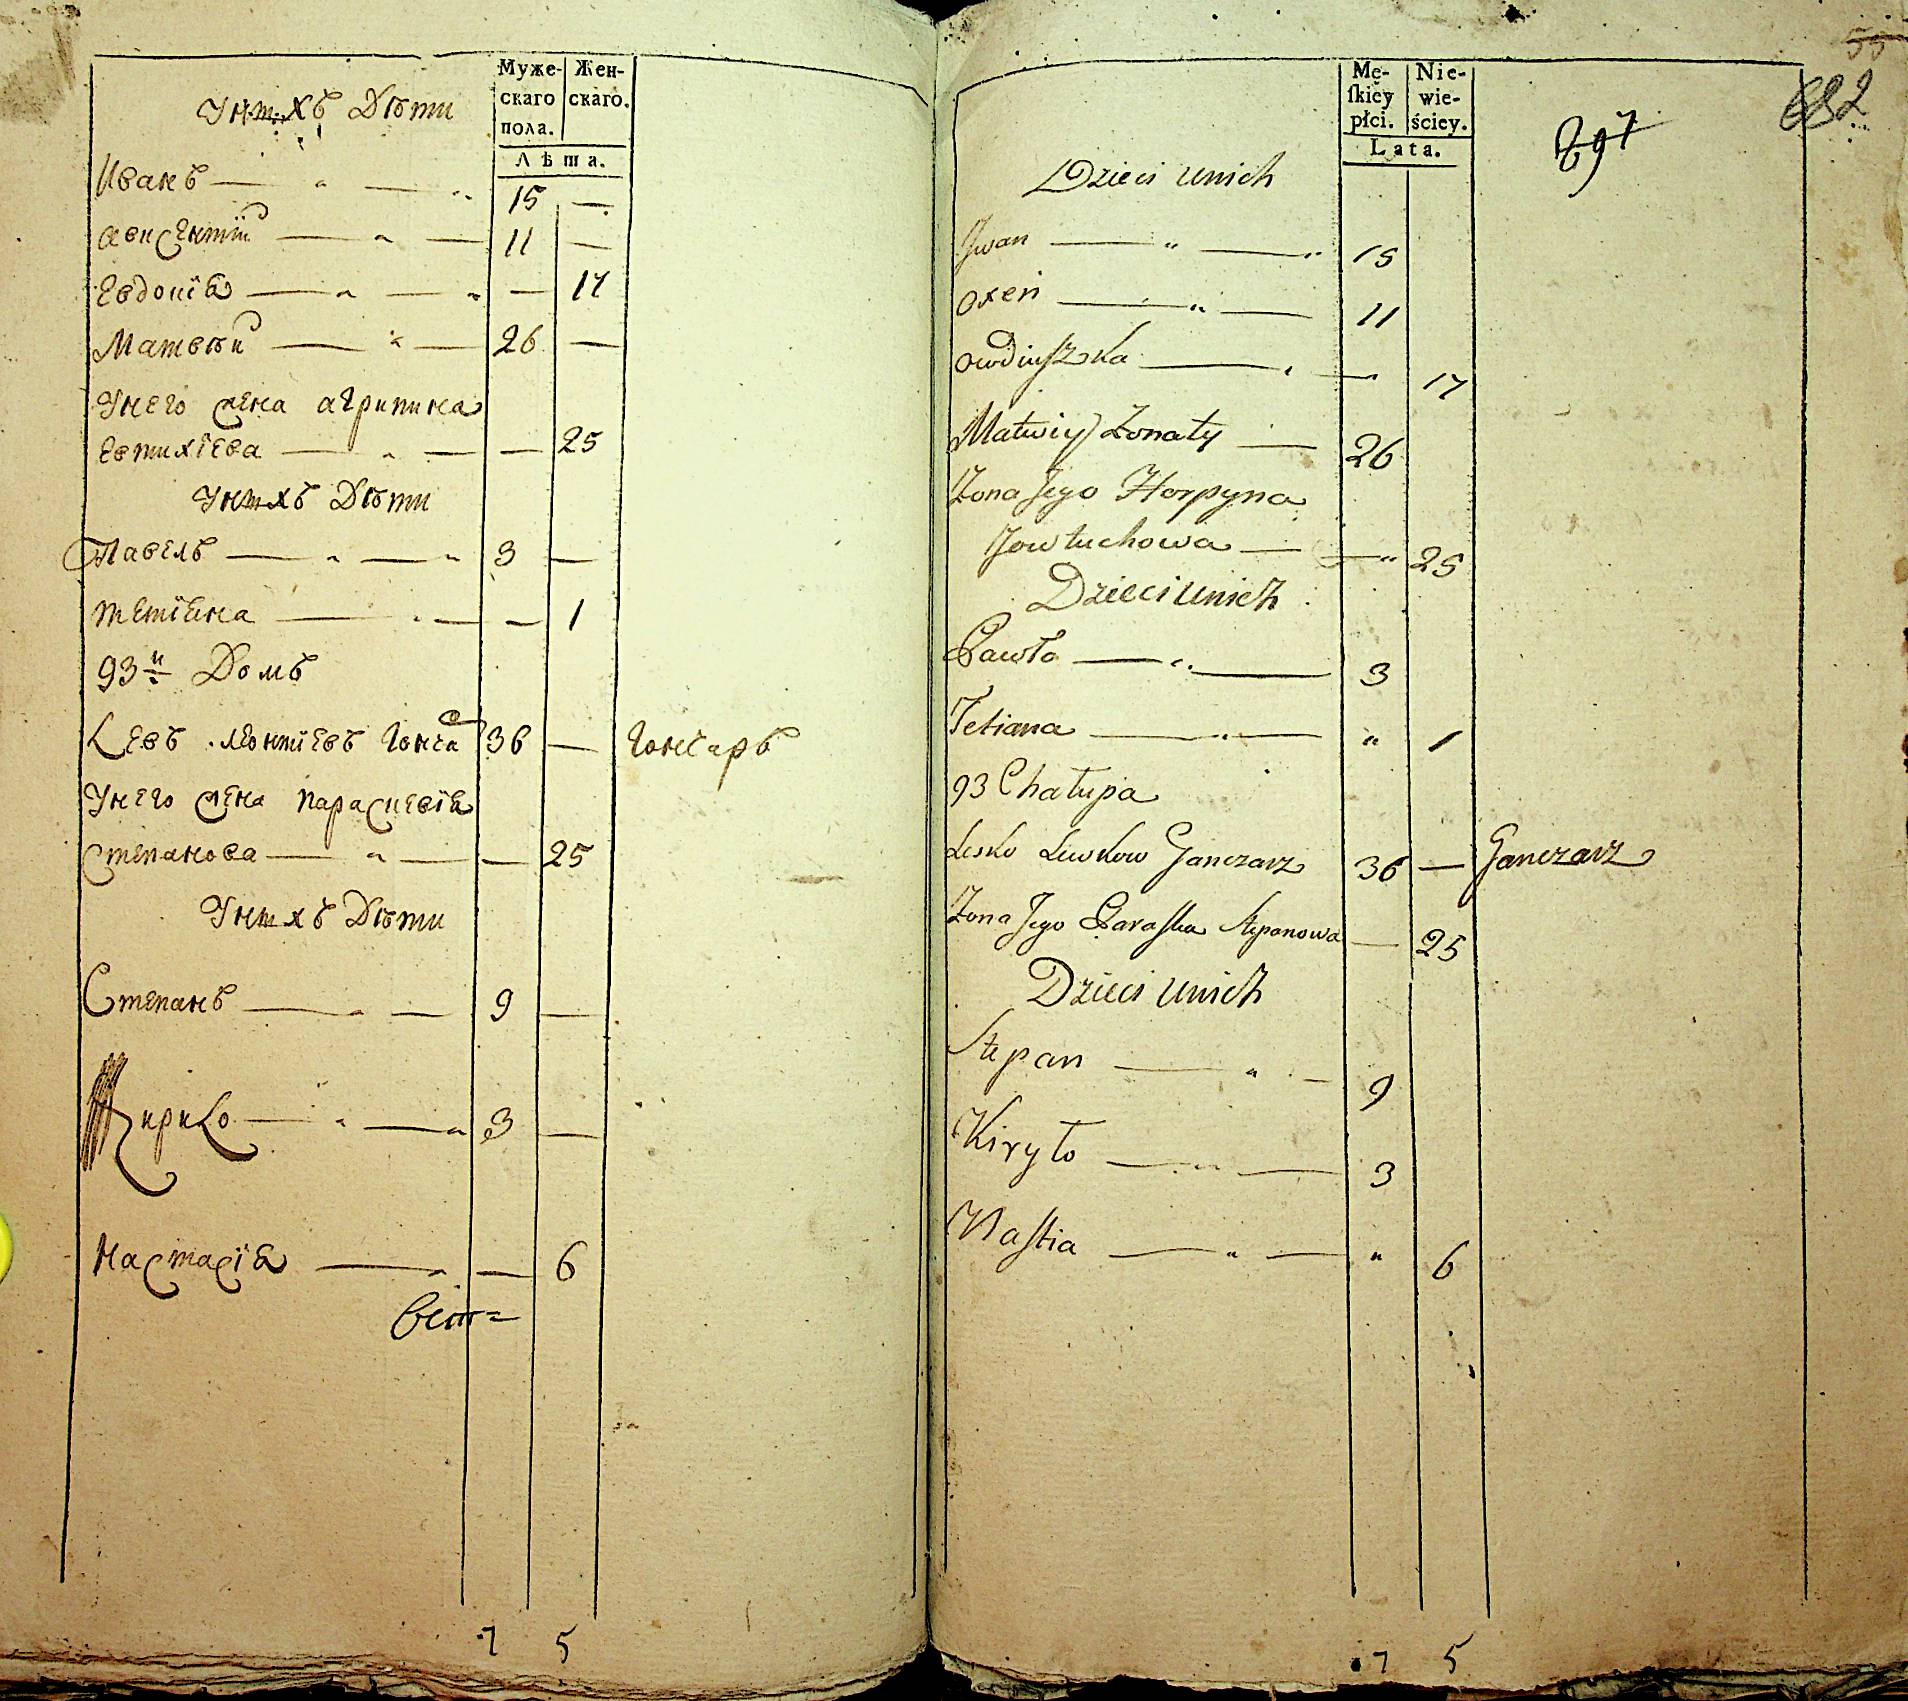 Муже- Жен-
скаго скаго.
пола.
Лѣта.
Унихъ Дѣти
Иванъ — " — " 15 —
авксентïй — " — 11 —
Евдокïя — " — " — 17
Матвѣй — " — 26 —
Унего жена агрипина
Евтихïева — " — — 25
Унихъ Дѣти
Павелъ — " — " 3 —
тетïяна — " — — 1
93й Домъ
Левъ леонтïевъ Гонча 36 — Гончаръ
Унего жена параскевïя
Степанова — " — — 25
Унихъ Дѣти
Степанъ — " — 9 —
Кирило — " — " 3 —
Настасïя — " — 6
7 5
55
682
697
Mę- Nie-
skiey wie-
płci. ściey.
Lata.
Dzieci unich
Jwan — " — " 15
Oxeń — " — 11
Owdiuszka — " — " 17
Matwiy Żonaty — 26
Żona Jego Horpyna
Jowtuchowa — — " 25
Dzieci unich
Pawło — " — 3
Tetiana — " — " 1
93 Chałupa
Lesko Lewkow Ganczarz 36 — Ganczarz
Żona Jego Paraska Stepanowa — 25
Dzieci unich
Stepan — " — 9
Kiryło — " — 3
Nastia — " — " 6
7 5